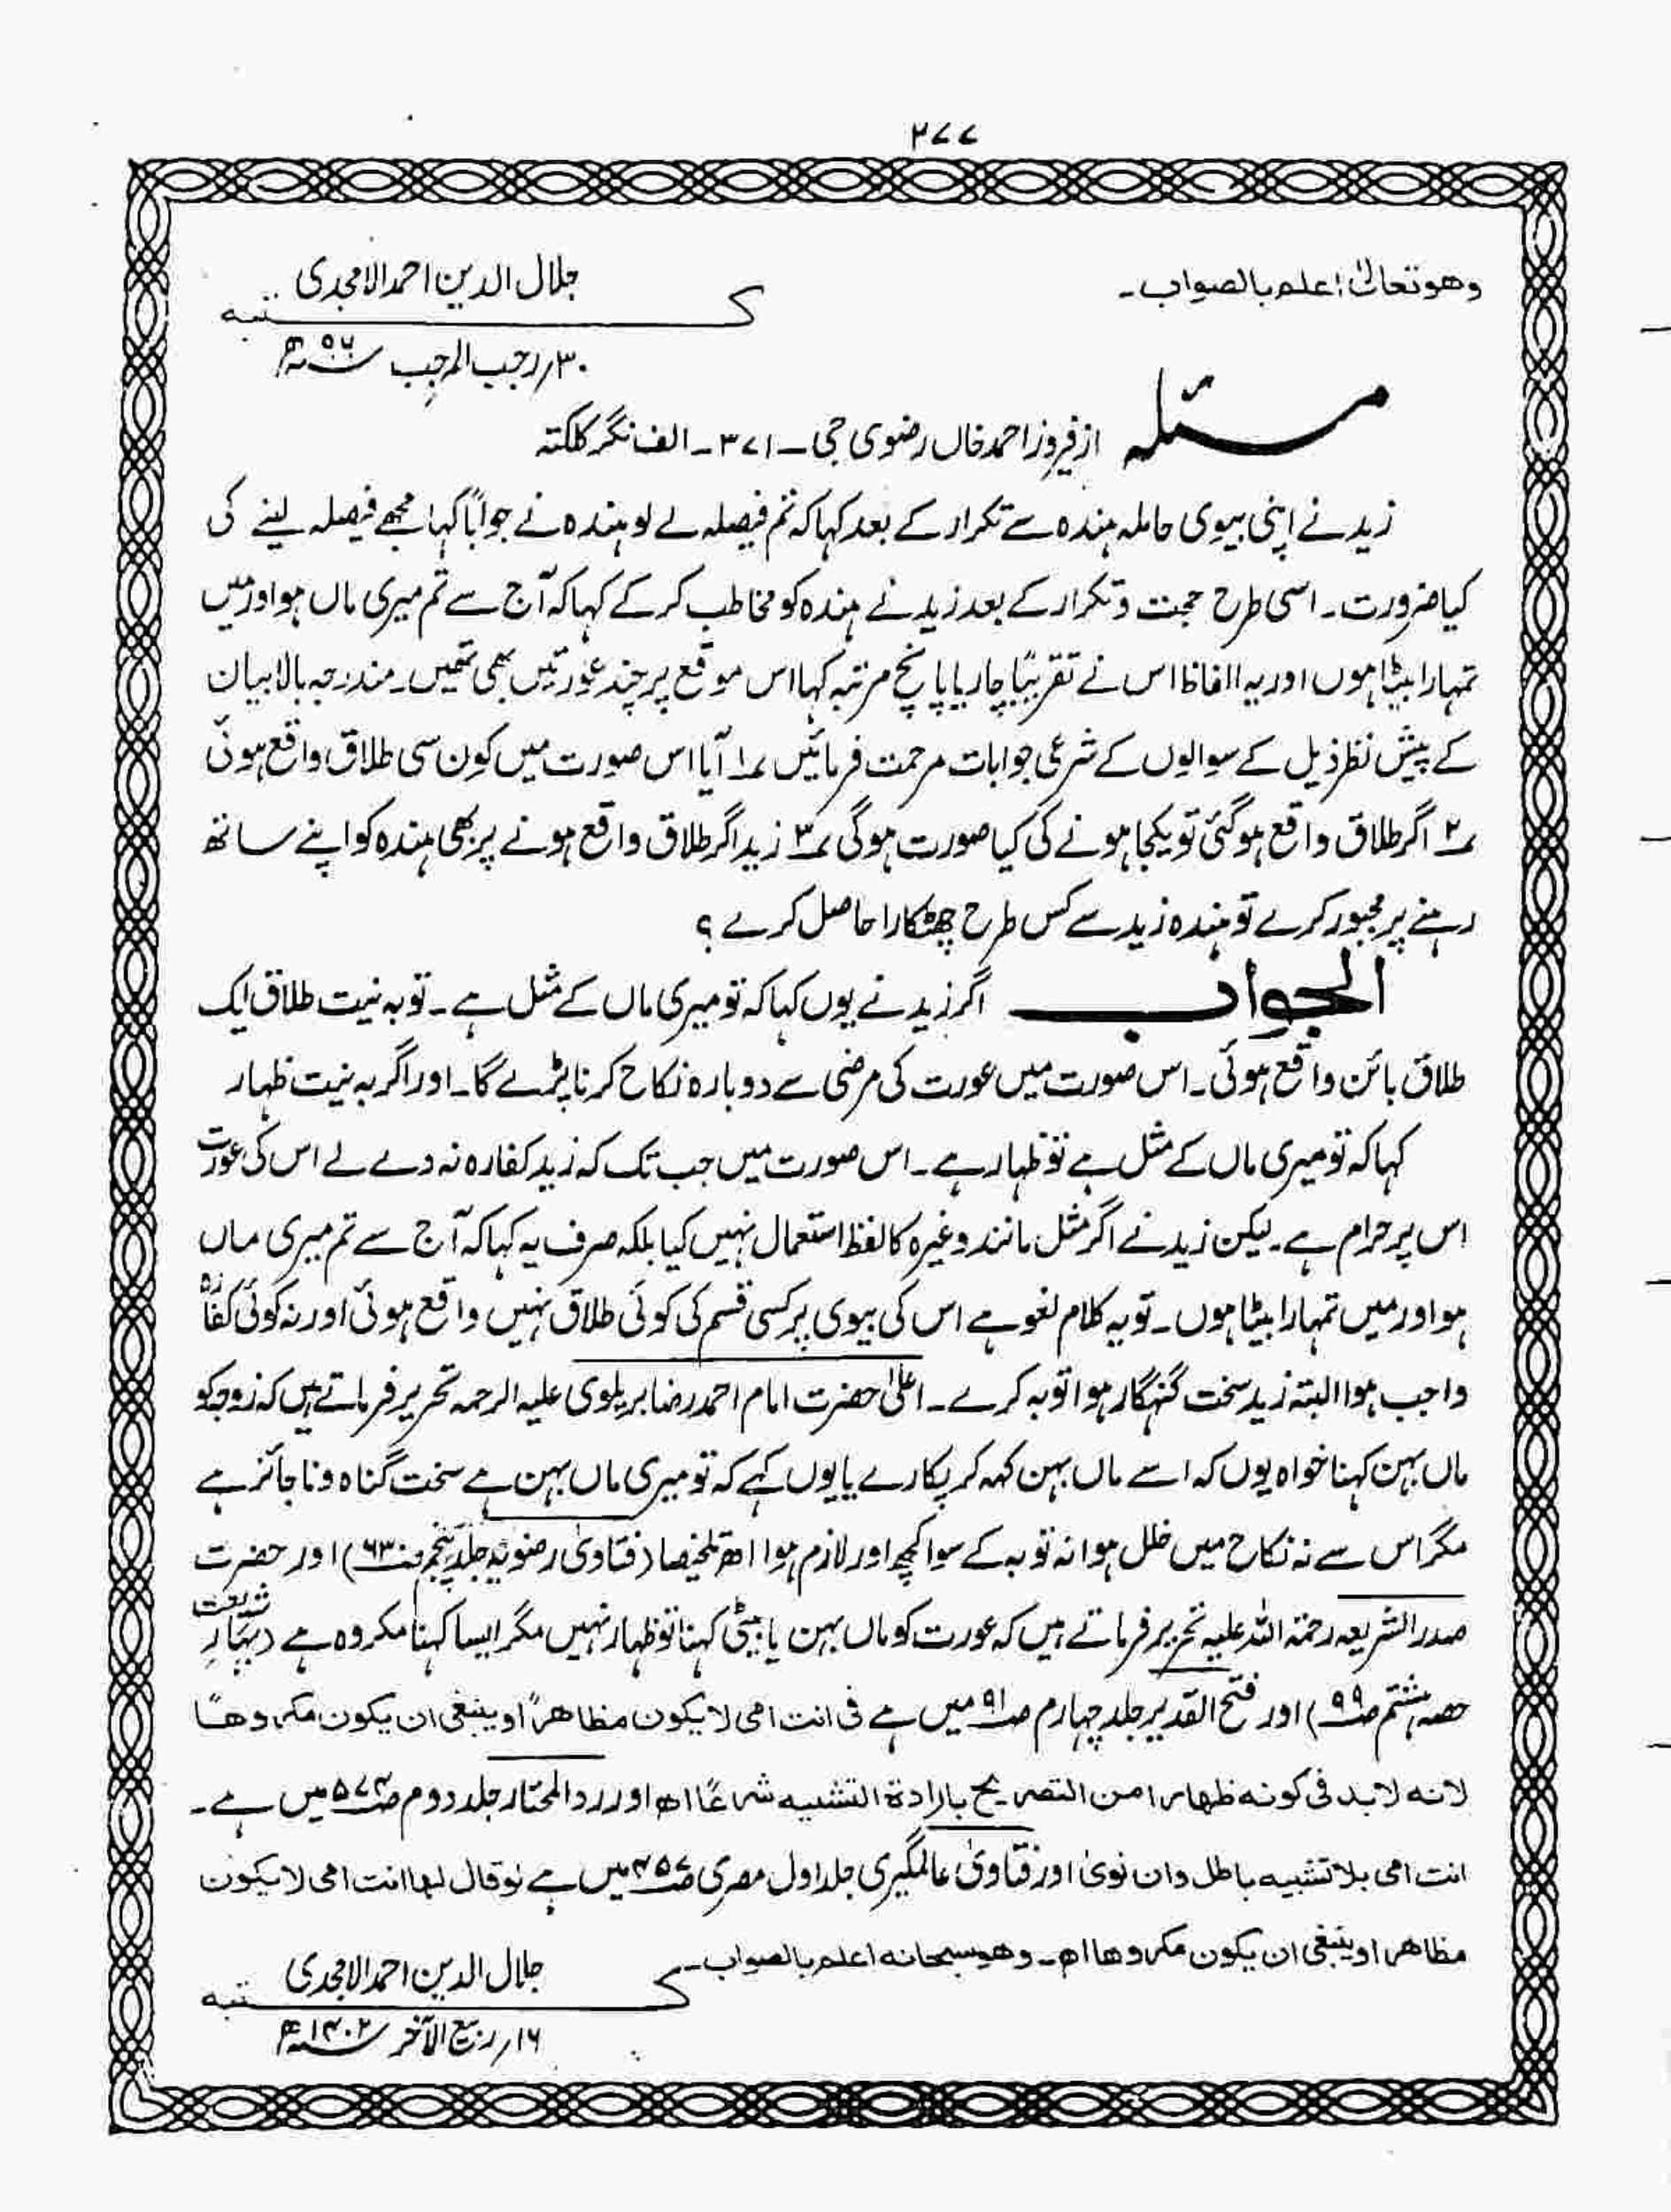 ۲۷۷
وھو تعالیٰ اعلم بالصواب۔
جلال الدین احمد الامجدی
کتبہ
۳۰؍رجب المرجب
مسئلہ از فیروز احمد خاں رضوی جی۔ ۳۷۱۔ الف نگر کلکتہ
زید نے اپنی بیوی حاملہ ہندہ سے تکرار کے بعد کہا کہ تم فیصلہ لے لو ہندہ نے جواباً کہا مجھے فیصلہ لینے کی
کیا ضرورت۔ اسی طرح حجت وتکرار کے بعد زید نے ہندہ کو مخاطب کر کے کہا کہ آج سے تم میری ماں ہو اور میں
تمہارا بیٹا ہوں اور یہ الفاظ اس نے تقریباً چار یا پانچ مرتبہ کہا اس موقع پر چند عورتیں بھی تھیں۔ مندرجہ بالا بیان
کے پیش نظر ذیل کے سوالوں کے شرعی جوابات مرحمت فرمائیں ؃۱ آیا اس صورت میں کون سی طلاق واقع ہوئی
؃۲ اگر طلاق واقع ہوگئی تو یکجا ہونے کی کیا صورت ہوگی ؃۳ زید اگر طلاق واقع ہونے پر بھی ہندہ کو اپنے ساتھ
رہنے پر مجبور کرے تو ہندہ زید سے کس طرح چھٹکارا حاصل کرے ؟
الجواب اگر زید نے یوں کہا کہ تو میری ماں کے مثل ہے۔ تو بہ نیت طلاق ایک
طلاق بائن واقع ہوئی۔ اس صورت میں عورت کی مرضی سے دوبارہ نکاح کرنا پڑے گا۔ اور اگر بہ نیت ظہار
کہا کہ تو میری ماں کے مثل ہے تو ظہار ہے۔ اس صورت میں جب تک کہ زید کفارہ نہ دے لے اس کی عورت
اس پر حرام ہے۔ لیکن زید نے اگر مثل مانند وغیرہ کا لفظ استعمال نہیں کیا بلکہ صرف یہ کہا کہ آج سے تم میری ماں
ہو اور میں تمہارا بیٹا ہوں۔ تو یہ کلام لغو ہے اس کی بیوی پر کسی قسم کی کوئی طلاق نہیں واقع ہوئی اور نہ کوئی کفارہ
واجب ہوا البتہ زید سخت گنہگار ہوا توبہ کرے۔ اعلیٰ حضرت امام احمد رضا بریلوی علیہ الرحمہ تحریر فرماتے ہیں کہ زوجہ کو
ماں بہن کہنا خواہ یوں کہ اسے ماں بہن کہہ کر پکارے یا یوں کہے کہ تو میری ماں بہن ہے سخت گناہ و ناجائز ہے
مگر اس سے نہ نکاح میں خلل ہوا نہ توبہ کے سوا کچھ اور لازم ہوا اھ تلخیصا (فتاویٰ رضویہ جلد پنجم صـ۶۳) اور حضرت
صدر الشریعہ رحمۃ اللہ علیہ تحریر فرماتے ہیں کہ عورت کو ماں بہن یا بیٹی کہنا تو ظہار نہیں مگر ایسا کہنا مکروہ ہے (بہار شریعت
حصہ ہشتم صـ۹۹) اور فتح القدیر جلد چہارم صـ۹۱ میں ہے فی انت امی لا یکون مظاھراً وینبغی ان یکون مکروھاً
لانہ لابد فی کونہ ظھارا من التصریح بارادۃ التشبیہ شرعاً اھ اور رد المحتار جلد دوم صـ۵۷۴ میں ہے۔
انت امی بلا تشبیہ باطل وان نویٰ اور فتاویٰ عالمگیری جلد اول مصری صـ۴۵۷ میں ہے لو قال لھا انت امی لا یکون
مظاھرا وینبغی ان یکون مکروھا اھ۔ وھو سبحانہ اعلم بالصواب۔
جلال الدین احمد الامجدی
کتبہ
۱۶؍ربیع الآخر ۱۴۰۲ھ